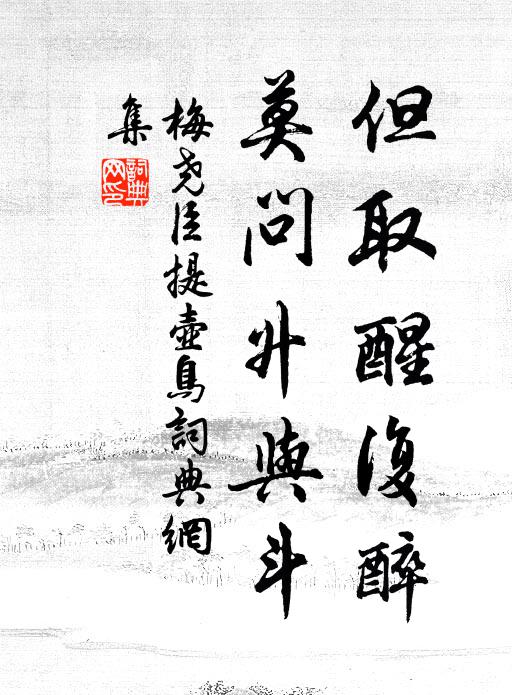 但取醒復醉
莫問升與斗
梅堯臣提壺鳥詞典網
集
詞典網印